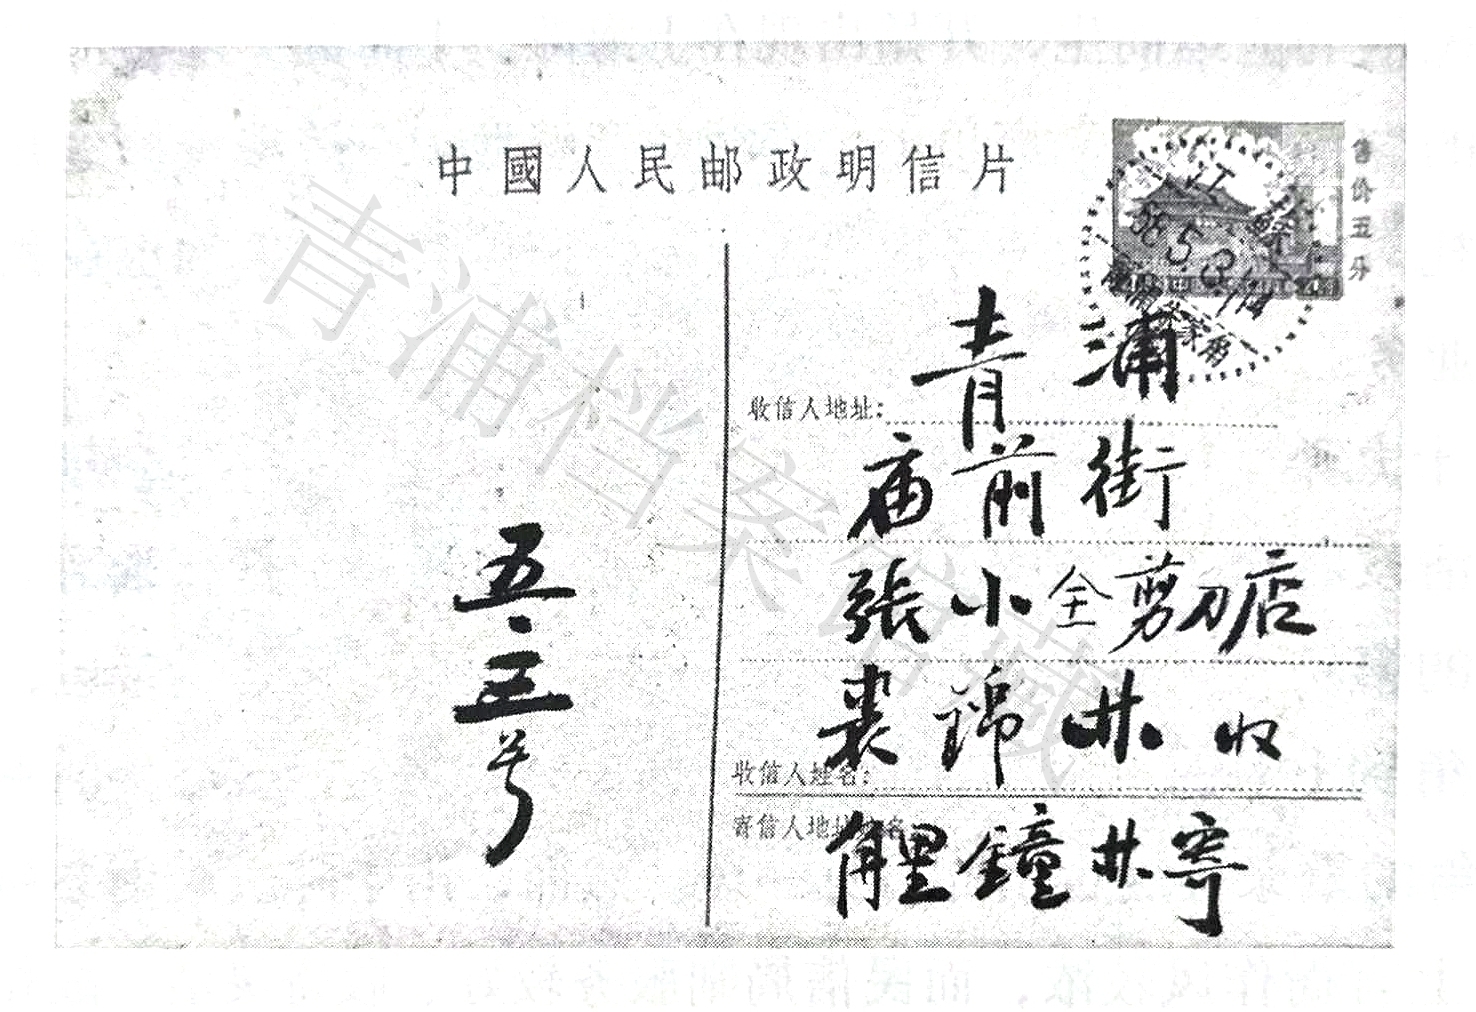 中國人民邮政明信片
售价五分
江蘇
56.5.3.
收信人地址：青浦
庙前街
張小全剪刀店
裘錦林收
收信人姓名：
寄信人地址姓名
角里鐘林寄
五.三号
青浦档案馆藏